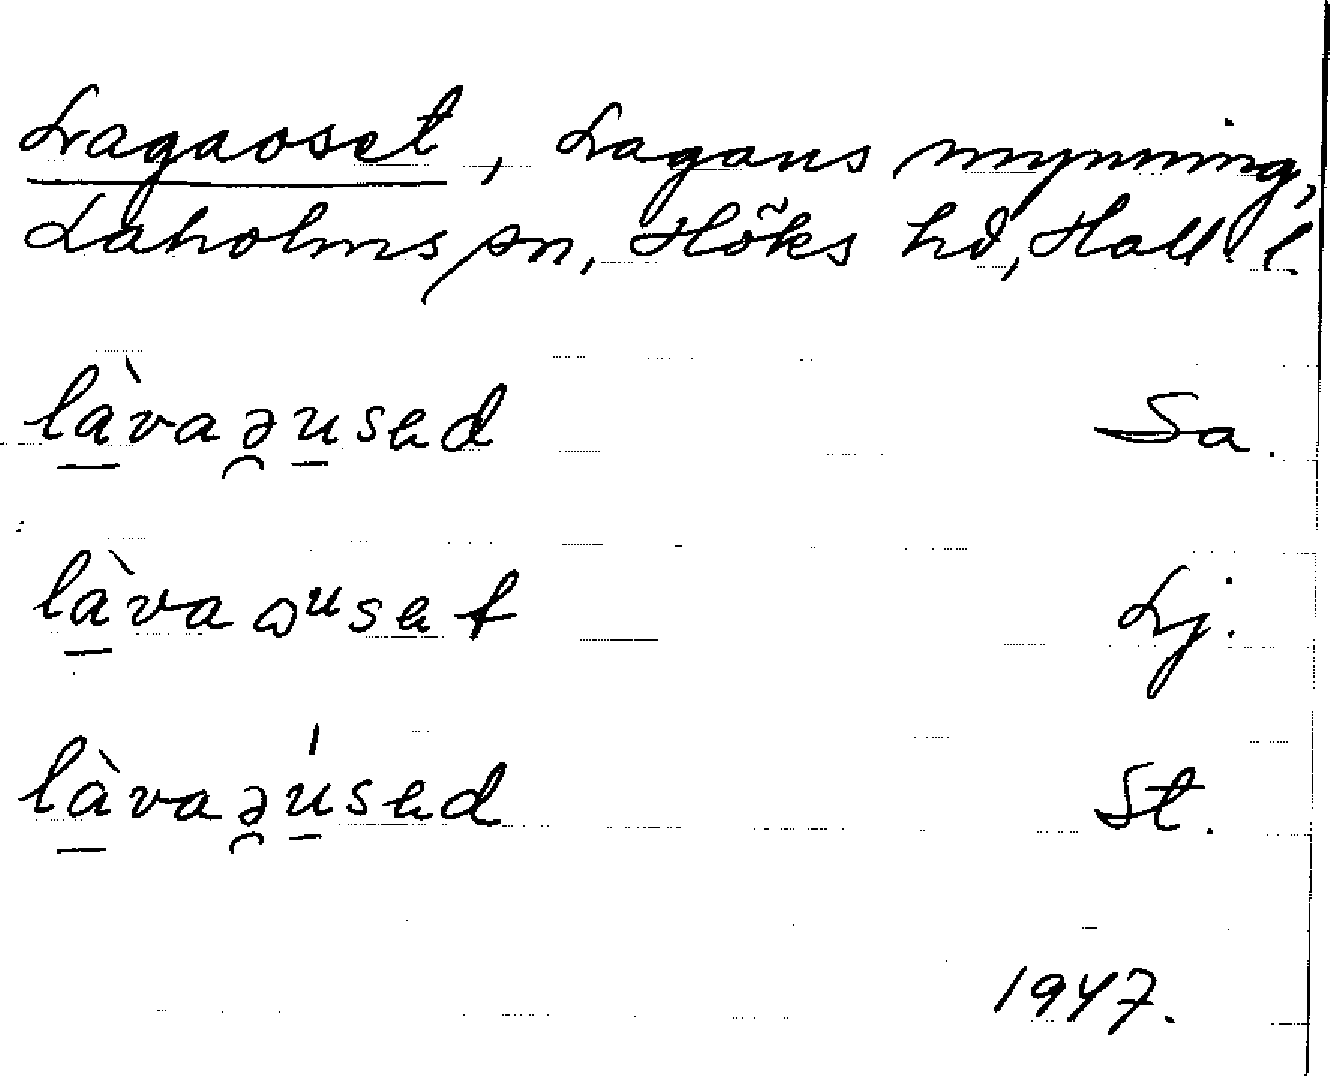 Lagaoset, Lagans mynning,
Laholms sn, Höks hd, Hall. l.
là̱vaə̯u̱sed Sa.
là̱vaɷᵘset Lj.
là̱vaə̯ú̱sed St.
1947.